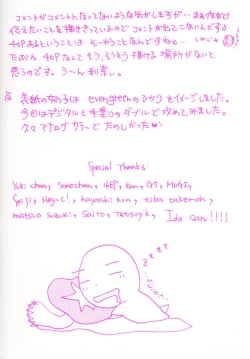 コメントがコメントになってないような気がしますが…まぁ作中で
伝えたいことを描ききっているのでコメントが出てこないんですよ
4Pあるということは そーゆうことなんですよね…
たぶん 4Pなんて もう、そうそう描ける場所がないと
思うのです。うーん
表紙の女の子は evergreenのひかり をイメージしました。
今回はデジタルと手塗りのダブルで攻めてみました。
久々アナログカラーでたのしかった
Special Thanks.
Yuki chan, Senochan, 4EP, Kan, MUGI,
Seiji, Hey-C!, hayashi kun, tiba takeroh,
matsuo suzuki, Saito, Tatosuyk, Ida san!!!!
zzzzzz